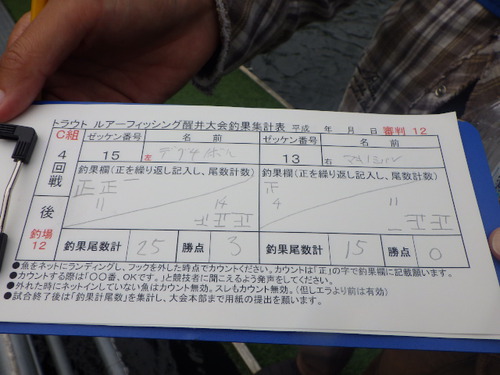 トラウト ルアーフィッシング醒井大会釣果集計表 平成 年 月 日 審判 12
C組 ゼッケン番号 名 前 ゼッケン番号 名 前
4回戦 15 左 13 右
釣果欄(正を繰り返し記入し、尾数計数) 釣果欄(正を繰り返し記入し、尾数計数)
正正一 正
11 14 4 11
後
釣場 12
釣果尾数計 25 勝点 3 釣果尾数計 15 勝点 0
●魚をネットにランディングし、フックを外した時点でカウントください。カウントは「正」の字で釣果欄に記載願います。
●カウントする際は「〇〇番、OKです。」と競技者に聞こえるよう発声をしてください。
●外れた時にネットインしていない魚はカウント無効。スレもカウント無効。(但しエラより前は有効)
●試合終了後は「釣果計尾数」を集計し、大会本部まで用紙の提出を願います。